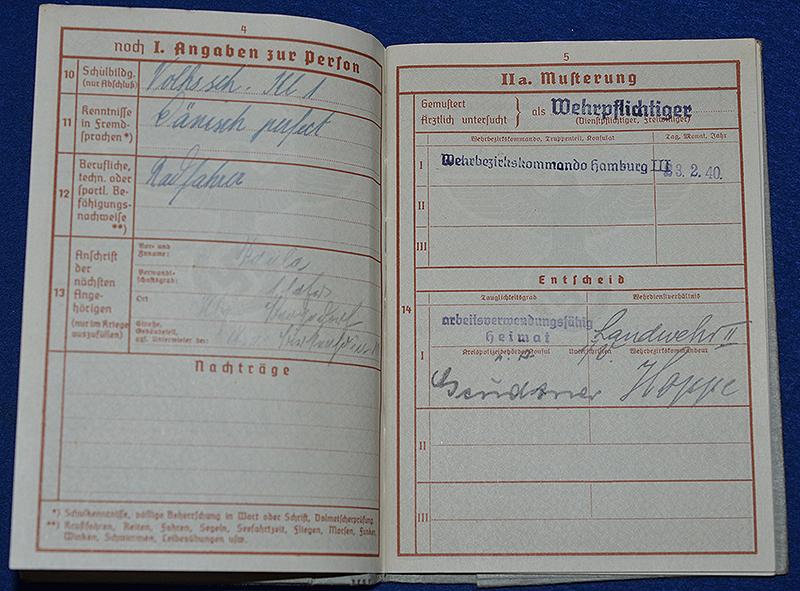 4
noch I. Angaben zur Person
10 Schulbildg. (nur Abschluß)
Volkssch. Kl 1
11 Kenntnisse in Fremd-
sprachen *)
Dänisch perfect
12 Berufliche, techn. oder
sportl. Be-
fähigungs-
nachweise
**)
Radfahrer
13 Anschrift
der
nächsten
Ange-
hörigen
(nur im Kriege
auszufüllen)
Vor- und
Zuname:
Verwandt-
schaftsgrad:
Ort
Straße,
Gebäudeteil,
ggf. Untermieter bei:
Nachträge
*) Schulkenntnisse, völlige Beherrschung in Wort oder Schrift, Dolmetscherprüfung.
**) Kraftfahren, Reiten, Fahren, Segeln, Seefahrtzeit, Fliegen, Morsen, Funken,
Winken, Schwimmen, Leibesübungen usw.
5
IIa. Musterung
Gemustert
Ärztlich untersucht } als Wehrpflichtiger
(Dienstpflichtiger, Freiwilliger)
Wehrbezirkskommando, Truppenteil, Konsulat
Tag, Monat, Jahr
I Wehrbezirkskommando Hamburg III 23. 2. 40.
II
III
14
Entscheid
Tauglichkeitsgrad Wehrdienstverhältnis
I arbeitsverwendungsfähig
Heimat
Landwehr II
Kreispolizeibehörde, Konsul Unterschriften Wehrbezirkskommandeur
Hoppe
II
III